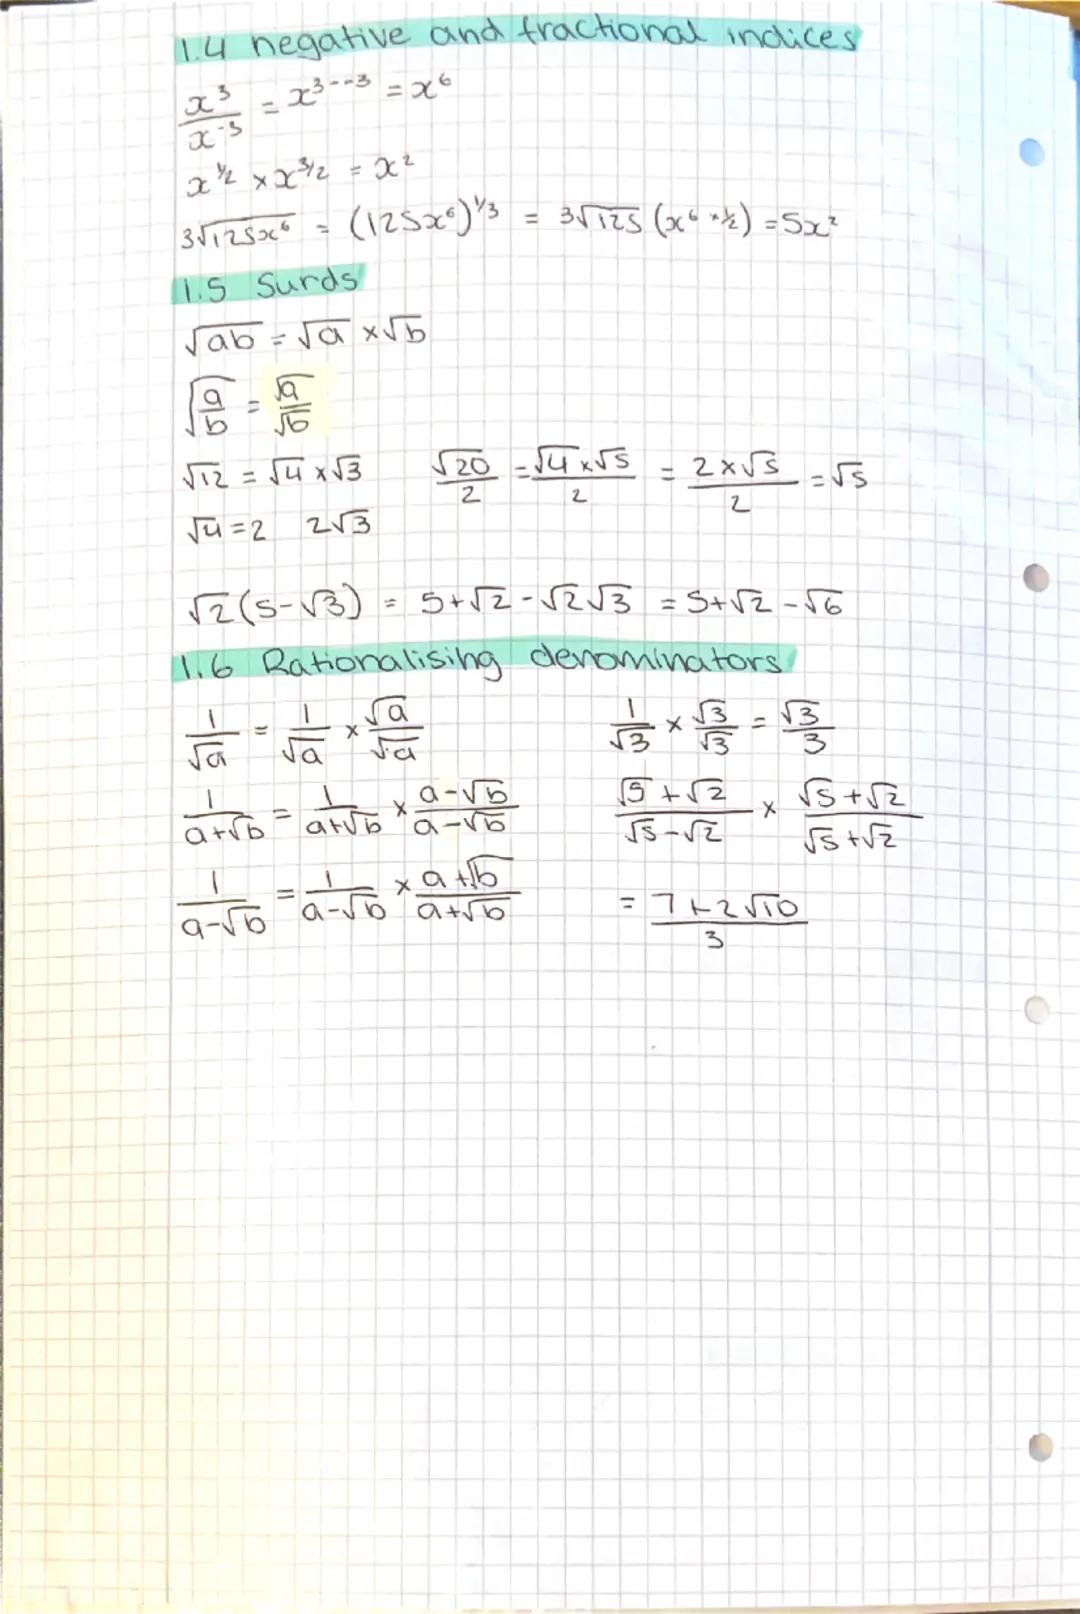 1.4 negative and fractional indices
x³/x⁻³ = x³⁻⁻³ = x⁶
x^½ × x^3/2 = x²
3√125x⁶ = (125x⁶)^1/3 = 3√125 (x⁶ ˣ ½) = 5x²
1.5 Surds
√ab = √a × √b
√a/b = √a/√b
√12 = √4 × √3 √20/2 = √4 × √5/2 = 2 × √5/2 = √5
√4 = 2 2√3
√2(5-√3) = 5+√2 - √2√3 = 5+√2 - √6
1.6 Rationalising denominators
1/√a = 1/√a × √a/√a 1/√3 × √3/√3 = √3/3
1/a+√b = 1/a+√b × a-√b/a-√b √5+√2/√5-√2 × √5+√2/√5+√2
1/a-√b = 1/a-√b × a+√b/a+√b = 7+2√10/3